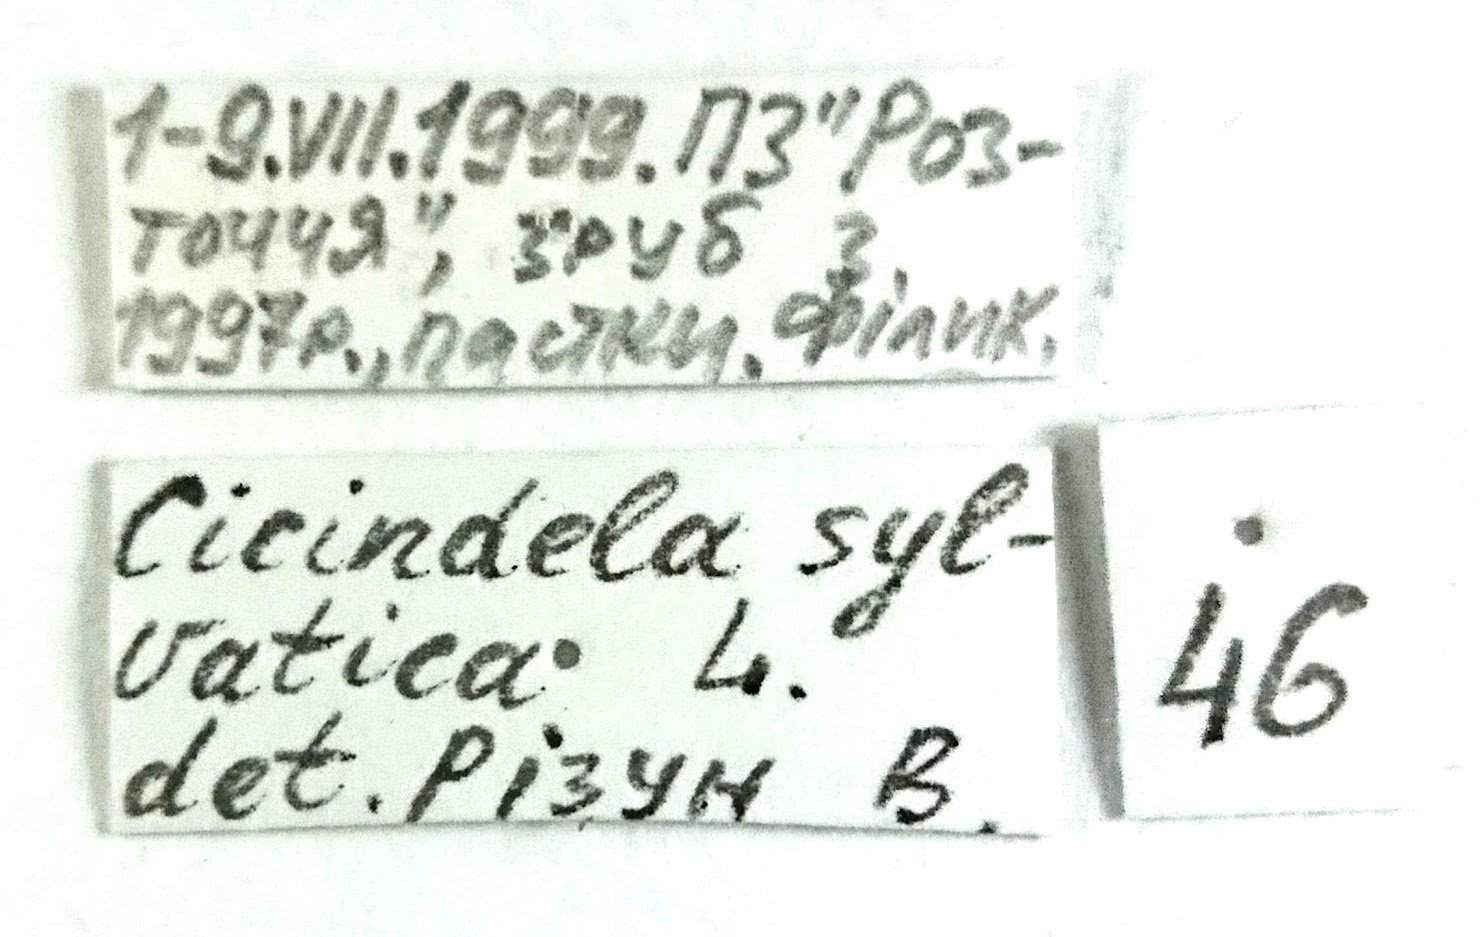 1-9.VII.1999. ПЗ "Роз-
точчя", зруб з
1997р., пастки. Філик.
Cicindela syl-
vatica L.
det. Різун В.
46